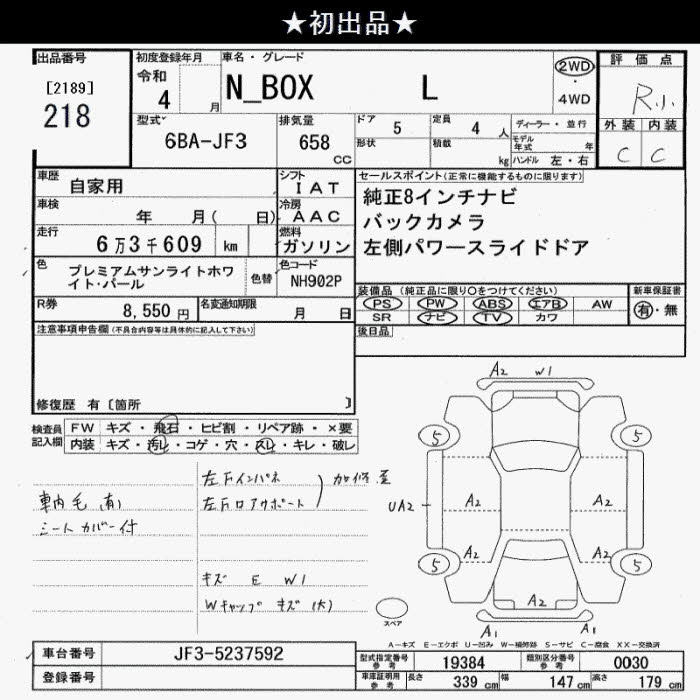 ★初出品★
出品番号
[2189]
218
初度登録年月
令和
4 月
車名・グレード
N_BOX L
2WD
・
4WD
評価点
R.1.
外装 内装
C C
型式
6BA-JF3
排気量
658 CC
ドア 5
形状
定員 4 人
積載 kg
ディーラー・並行
モデル年式 年
ハンドル 左・右
車歴 自家用
シフト IAT
車検 年 月( 日)
冷房 AAC
走行 6万3千609 km
燃料 ガソリン
色 プレミアムサンライトホワイト・パール
色替
色コード NH902P
R券 8,550円
名変通知期限 月 日
セールスポイント(正常に機能するものに限ります)
純正8インチナビ
バックカメラ
左側パワースライドドア
装備品(純正品に限り〇をつけてください)
PS PW ABS エアB AW
SR ナビ TV カワ
新車保証書
有・無
後日品
注意事項申告欄(不具合内容等は具体的に記入して下さい)
修復歴 有〔箇所 〕
検査員記入欄
FW キズ・飛石・ヒビ割・リペア跡・×要
内装 キズ・汚レ・コゲ・穴・スレ・キレ・破レ
車内毛(有)
シートカバー付
左Fインパネ
左Fロアサポート
加修歪
キズ E W1
Wキャップ キズ(大)
A2 W1
5 5
UA2 A2 A2
A2 A2
5 5
A2
A1 A1
スペア
A-キズ E-エクボ U-凹み W-補修跡 S-サビ C-腐食 XX-交換済
車台番号 JF3-5237592
登録番号
型式指定番号 参考 19384
類別区分番号 参考 0030
車庫証明用 参考 長さ 339 cm 幅 147 cm 高さ 179 cm